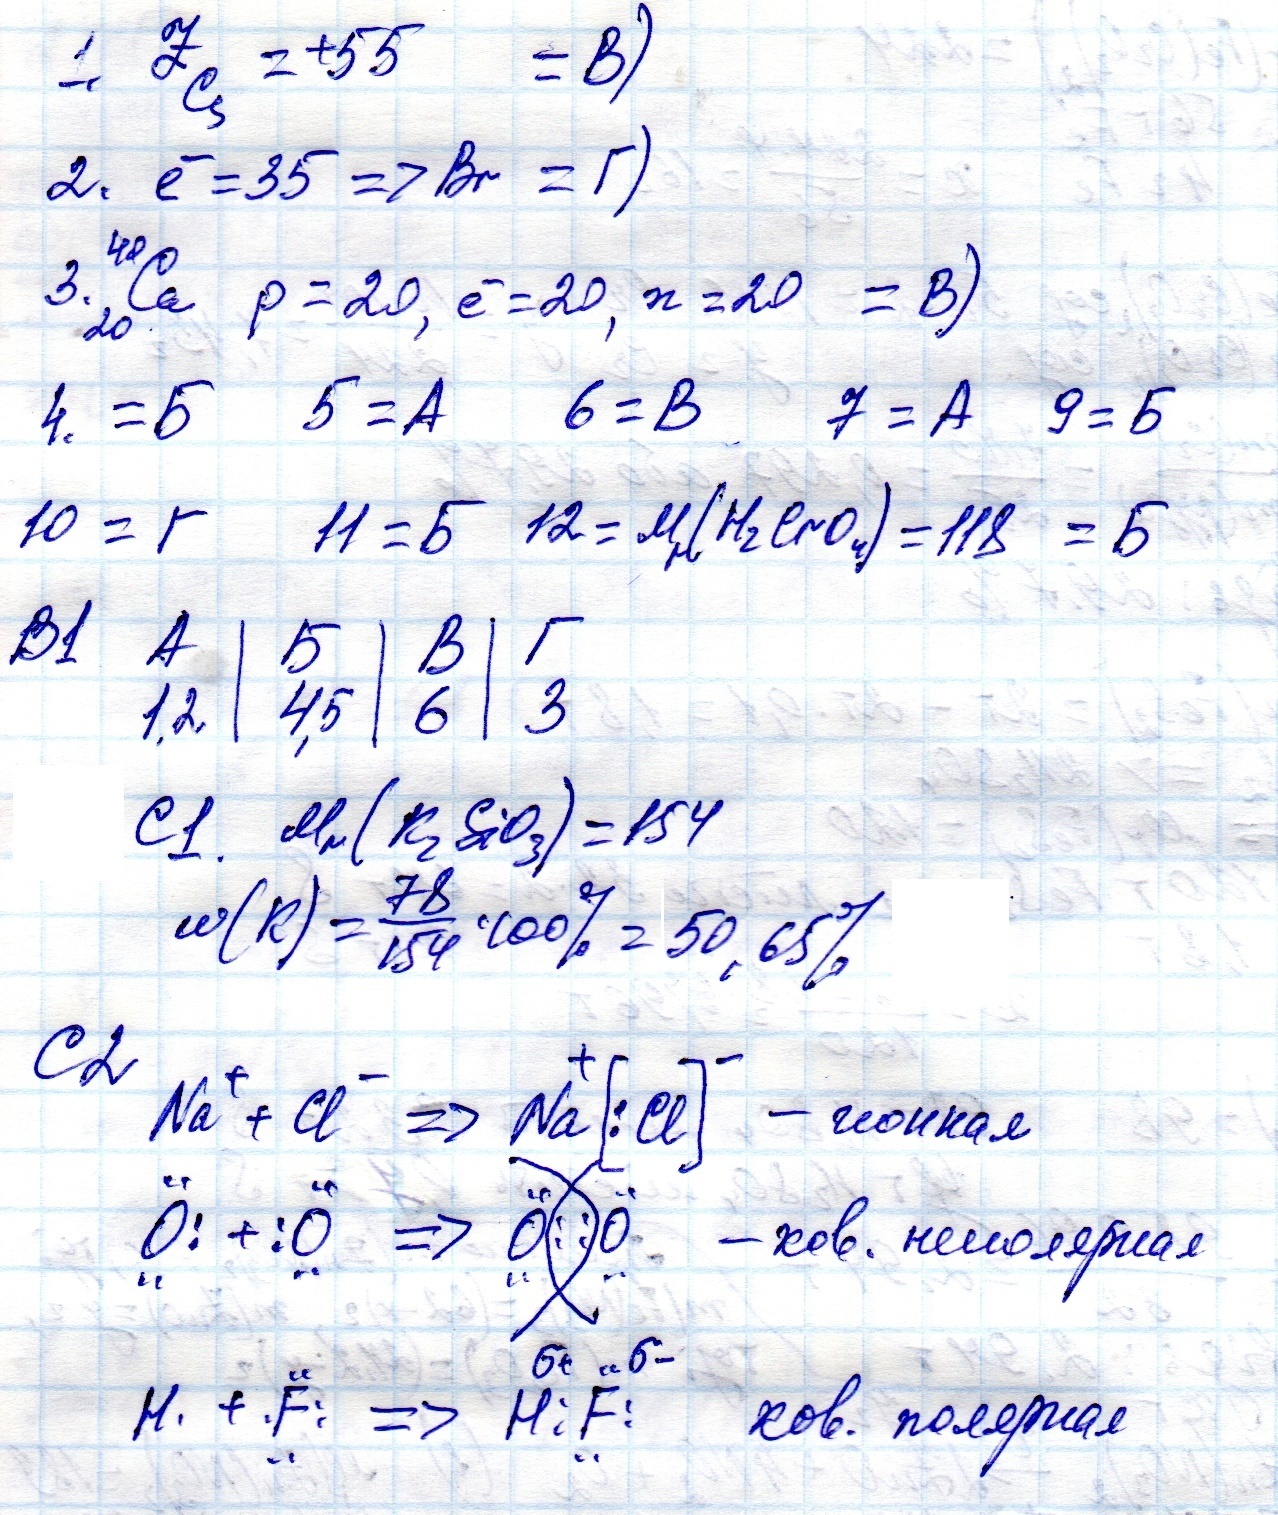 1. Z Cs = +55 = В)
2. ē = 35 => Br = Г)
3. ⁴⁰₂₀Ca p = 20, ē = 20, n = 20 = В)
4. = Б 5 = А 6 = В 7 = А 9 = Б
10 = Г 11 = Б 12 = Mr(H₂CrO₄) = 118 = Б
В1 А | Б | В | Г
1,2 | 4,5 | 6 | 3
С1. Mr(K₂SiO₃) = 154
w(K) = 78/154 · 100% = 50,65%
С2
Na⁺ + Cl⁻ => Na⁺[:Cl]⁻ – ионная
O: + :O => O::O – ков. неполярная
H· + ·F: => Hδ+ : Fδ-: ков. полярная